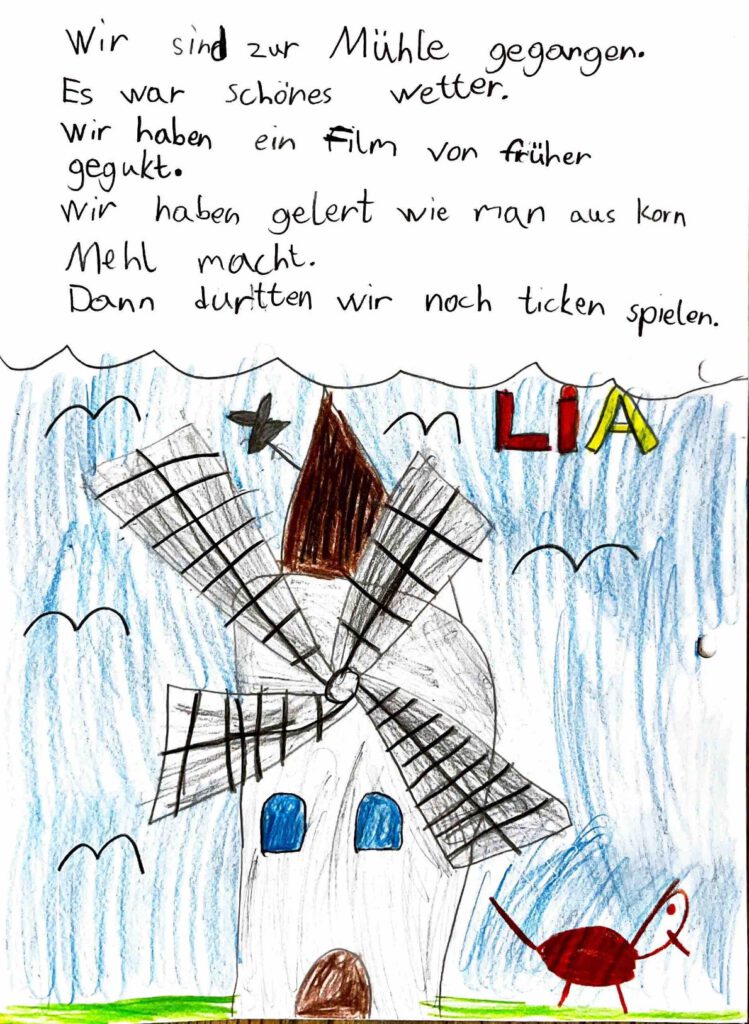 Wir sind zur Mühle gegangen.
Es war schönes wetter.
Wir haben ein Film von früher
gegukt.
Wir haben gelert wie man aus korn
Mehl macht.
Dann durftten wir noch ticken spielen.
LiA